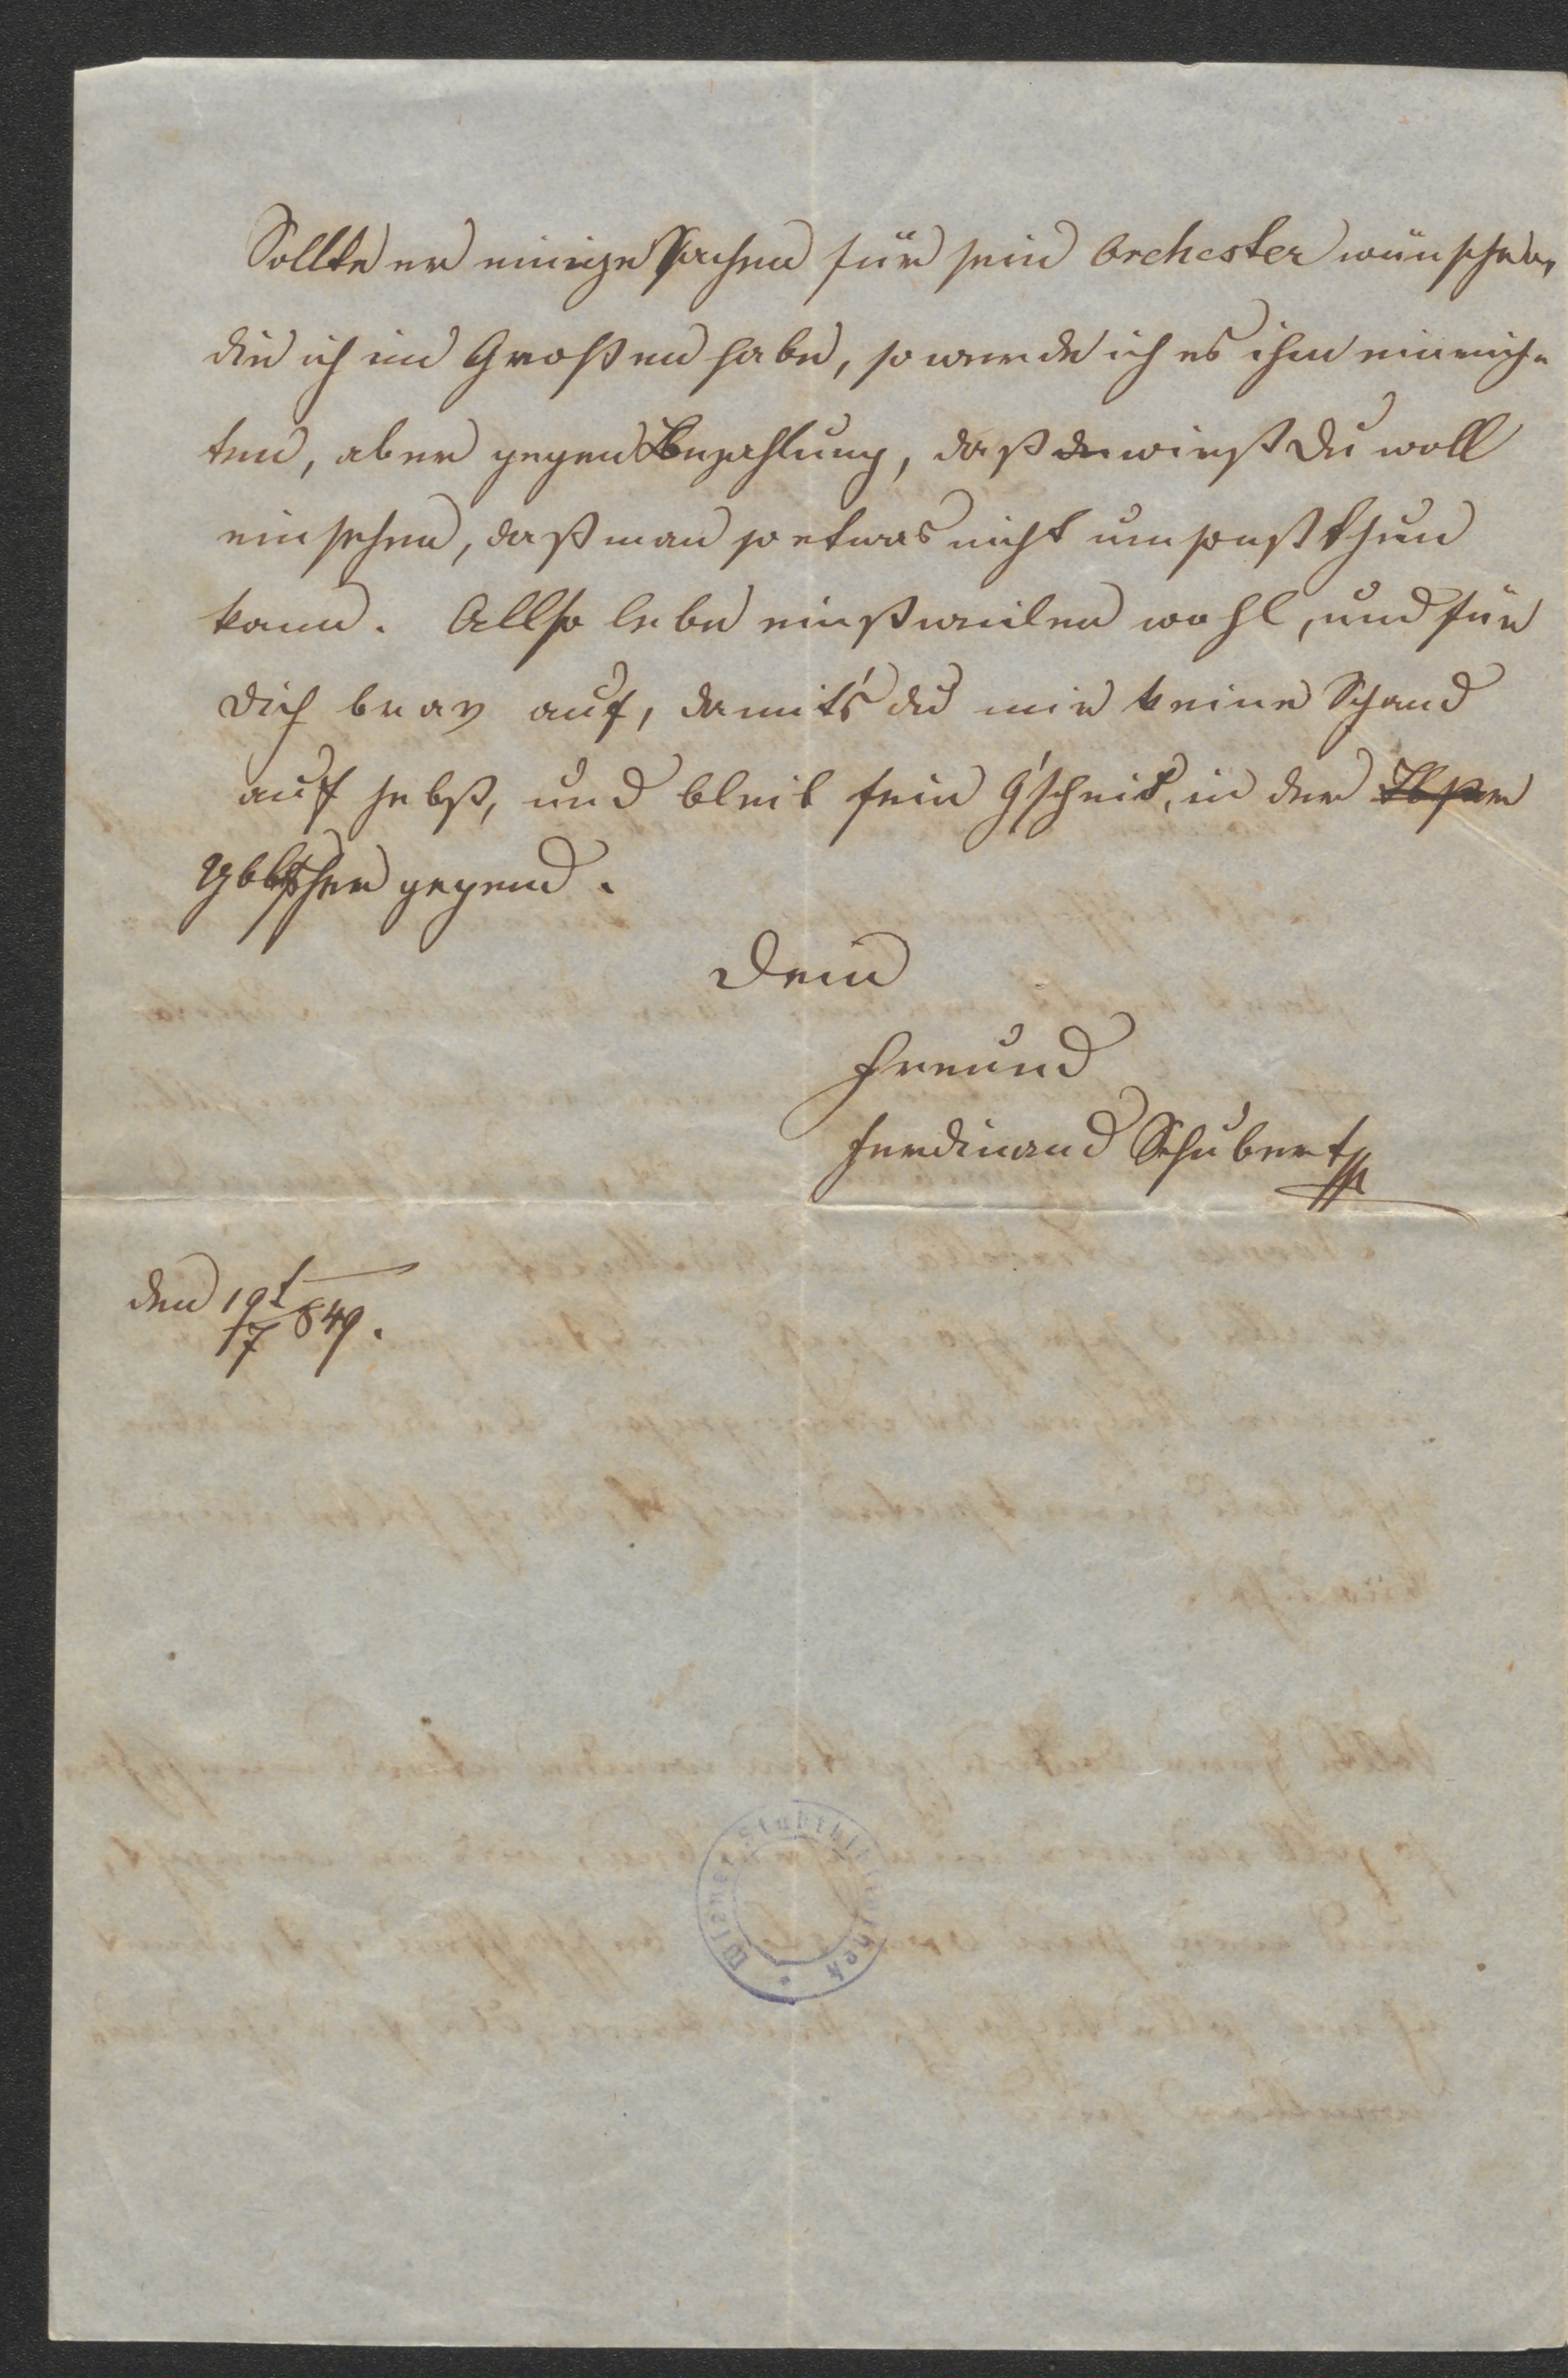 Sollte er einige Sachen für sein Orchester wünschen,
die ich im Großen habe, so werde ich es ihm einrich-
ten, aber gegen Bezahlung, daß wirst Du woll
einsehen, daß man so etwas nicht umsonst thun
kann. Allso lebe einstweilen wohl, und für
Dich brav auf, damit's du mir keine Schand
auf hebst, und bleib fein g'scheit, in der
Ybbscher gegend.
Dein
Freund
Ferdinand Schubert
den 19t/7 849.
Wiener Stadtbibliothek